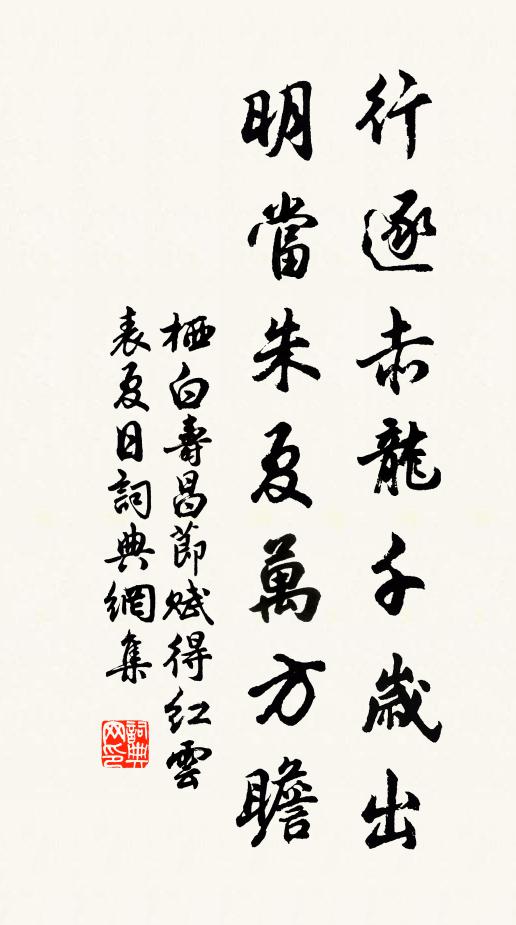 行逐赤龍千歲出
明當朱夏萬方瞻
栖白壽昌節賦得紅雲
表夏日詞典網集
詞典
网印